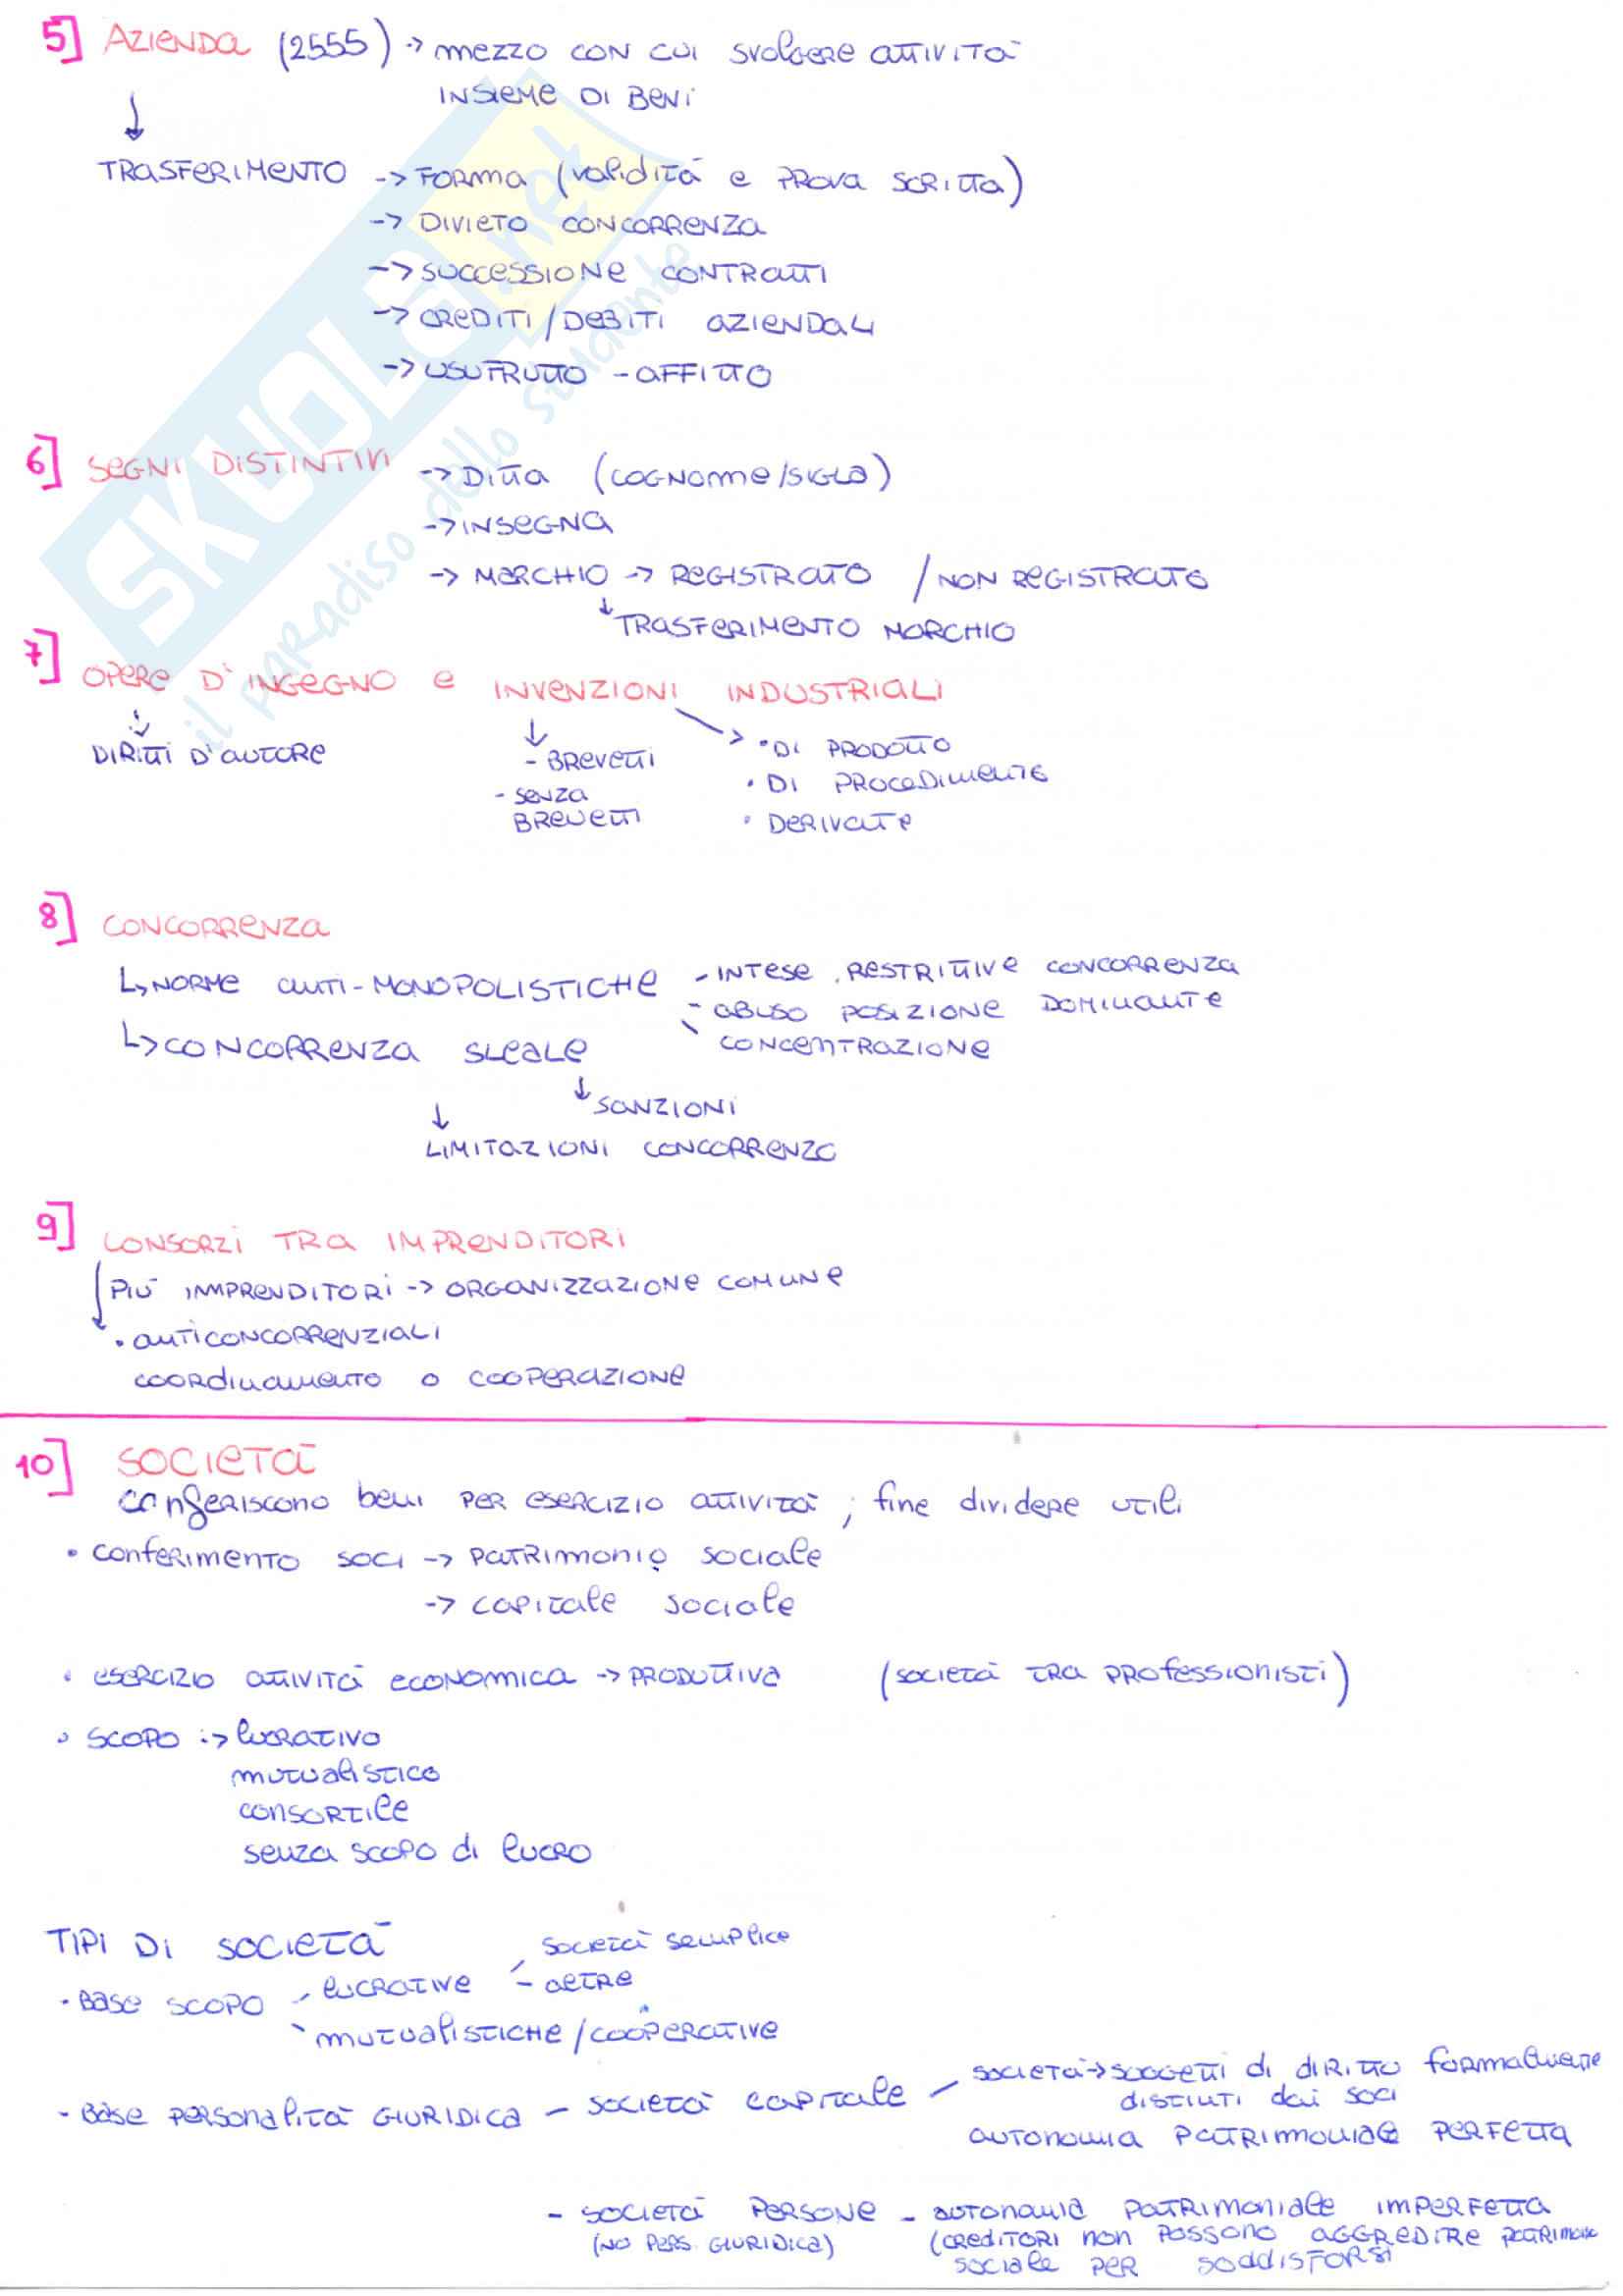 5] AZIENDA (2555) -> mezzo con cui svolgere attività
insieme di beni
TRASFERIMENTO -> FORMA (validità e PROVA SCRITTA)
-> DIVIETO CONCORRENZA
-> SUCCESSIONE CONTRATTI
-> CREDITI/DEBITI AZIENDALI
-> USUFRUTTO - AFFITTO
6] SEGNI DISTINTIVI -> DITTA (COGNOME/SIGLA)
-> INSEGNA
-> MARCHIO -> REGISTRATO / NON REGISTRATO
TRASFERIMENTO MARCHIO
7] OPERE D'INGEGNO e INVENZIONI INDUSTRIALI
DIRITTI D'AUTORE
- BREVETTI
- SENZA
BREVETTI
• DI PRODOTTO
• DI PROCEDIMENTO
• DERIVATE
8] CONCORRENZA
NORME ANTI-MONOPOLISTICHE - INTESE RESTRITTIVE CONCORRENZA
- ABUSO POSIZIONE DOMINANTE
CONCENTRAZIONE
CONCORRENZA SLEALE
SANZIONI
LIMITAZIONI CONCORRENZA
9] CONSORZI TRA IMPRENDITORI
PIÙ IMPRENDITORI -> ORGANIZZAZIONE COMUNE
• ANTICONCORRENZIALI
COORDINAMENTO O COOPERAZIONE
10] SOCIETÀ
conferiscono beni per esercizio attività, fine dividere utili
• conferimento soci -> patrimonio sociale
-> capitale sociale
• esercizio attività economica -> PRODUTTIVA (società tra professionisti)
• SCOPO :-> lucrativo
mutualistico
consortile
senza scopo di lucro
TIPI DI SOCIETÀ
- BASE SCOPO - lucrative - società semplice
- altre
mutualistiche/cooperative
- BASE personalità GIURIDICA - società capitale - società -> soggetti di diritto formalmente
distinti dai soci
autonomia patrimoniale PERFETTA
- SOCIETÀ PERSONE - autonomia patrimoniale IMPERFETTA
(NO PERS. GIURIDICA) (CREDITORI non possono AGGREDIRE patrimonio
sociale per soddisfarsi
SKUOLA.net
il paradiso dello studente